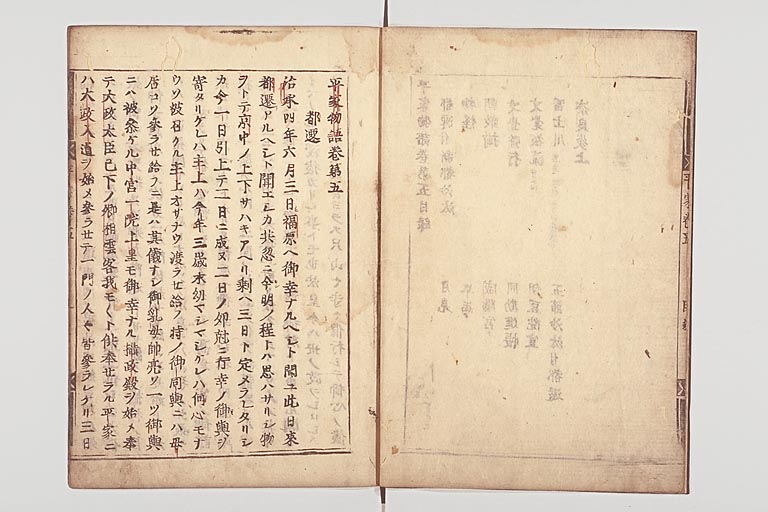 平家物語巻第五目録
都遷付新都沙汰
月見
物怪
早馬
朝敵揃
咸陽宮
文覚荒行
同勧進帳
文覚被流
富士川
奈良炎上
平家巻五
目録
平家物語巻第五
都遷
治承四年六月三日福原ヘ御幸ナルヘシト聞ユ此日来
都遷アルヘシト聞エシカ共忽ニ今明ノ程トハ思ハサリシ物
ヲトテ京中ノ上下サハキアヘリ剰ヘ三日ト定メラレタリシ
カ今一日引上テ二日ニ成ヌ二日ノ卯尅ニ行幸ノ御輿ヲ
寄タリケレハ主上ハ今年三歳未幼マシマシケレハ何心モナ
ウソ被召ケル主上オサナウ渡ラセ給フ時ノ御同輿ニハ母
后コソ参ラセ給フニ是ハ其儀ナシ御乳母帥亮ソ一ツ御輿
ニハ被参ケル中宮一院上皇モ御幸ナル摂政殿ヲ始メ奉
テ大政太臣已下ノ卿相雲客我モ〱ト供奉セラル平家ニ
ハ大政入道ヲ始メ参ラセテ一門ノ人々皆参ラレケリ三日